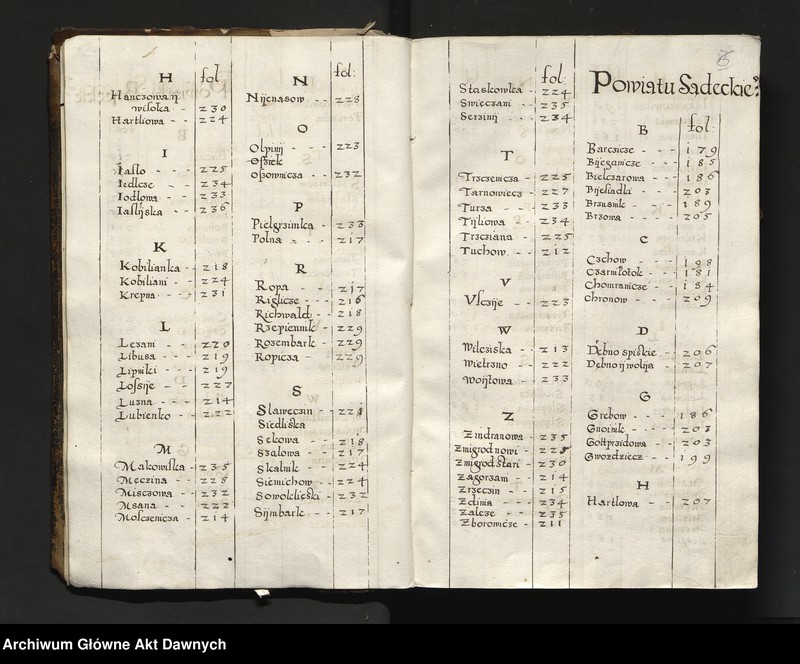 H fol:
Hanczowa ÿ
wisoka - 230
Hartlowa - - 224
I
Iasło - - - 225
Iedlcze - - 234
Iodłowa - - 233
Iaslÿska - - 236
K
Kobilianka - 218
Kobiliani - - 224
Krepna - - - 231
L
Lezani - - - 220
Libusa - - - 219
Lipniki - - - 219
Lossÿe - - - 227
Luzna - - - 214
Lubienko - - 222
M
Malcowiska - 235
Męczina - - 228
Misczowa - - 232
Msana - - - 222
Moscenicza - 214
fol:
N
Nÿenasow - - 228
O
Olpinÿ - - - 223
Ossiek
Ossownicza - - 232
P
Pielgrzimka - 233
Polna - - - 217
R
Ropa - - - 217
Riglicze - - - 216
Richwałd - - 218
Rzepiennik - - 229
Rozembark - - 229
Ropicza - - 229
S
Slawęczin - - 221
Siedliska
Sękowa - - 218
Szalowa - - 217
Skalnik - - - 224
Siemichow - - 224
Sowoklęski - - 232
Sÿmbark - - 217
fol:
Staskowka - - 224
Swieczani - - 235
Serzinÿ - - 234
T
Trzczenicza - - 225
Tarnowiecz - - 227
Turza - - 233
Tÿlÿowa - - 234
Trzcziana - - 225
Tuchow - - 212
V
Vsczÿe - - 223
W
Wilcziska - - 213
Wietrzno - - 222
Woÿtowa - - 233
Z
Zindranowa - 235
Zmigrod nowi - - 228
Zmigrod stari - 230
Zagorzani - - 214
Zrzęczin - - 215
Zdinia - - - 234
Zalęze - - 235
Zborowicze - 211
Powiatu Sądeckieº:
B fol:
Barczicze - - - 179
Biieganicze - - - 185
Bielczarowa - - - 186
Bÿesiadki - - - 203
Bruśnik - - - 189
Brzowa - - - 205
C
Czchow - - - 198
Czarnÿpotok - - 181
Chomranicze - - 184
Chronow - - - 209
D
Dębno spiskie - - 206
Dębno ÿ wolÿa - - 207
G
Grębow - - - 186
Gnoinik - - - 203
Gosprzidowa - - 203
Gwozdziecz - - - 199
H
Hartlowa - - 207
Archiwum Główne Akt Dawnych